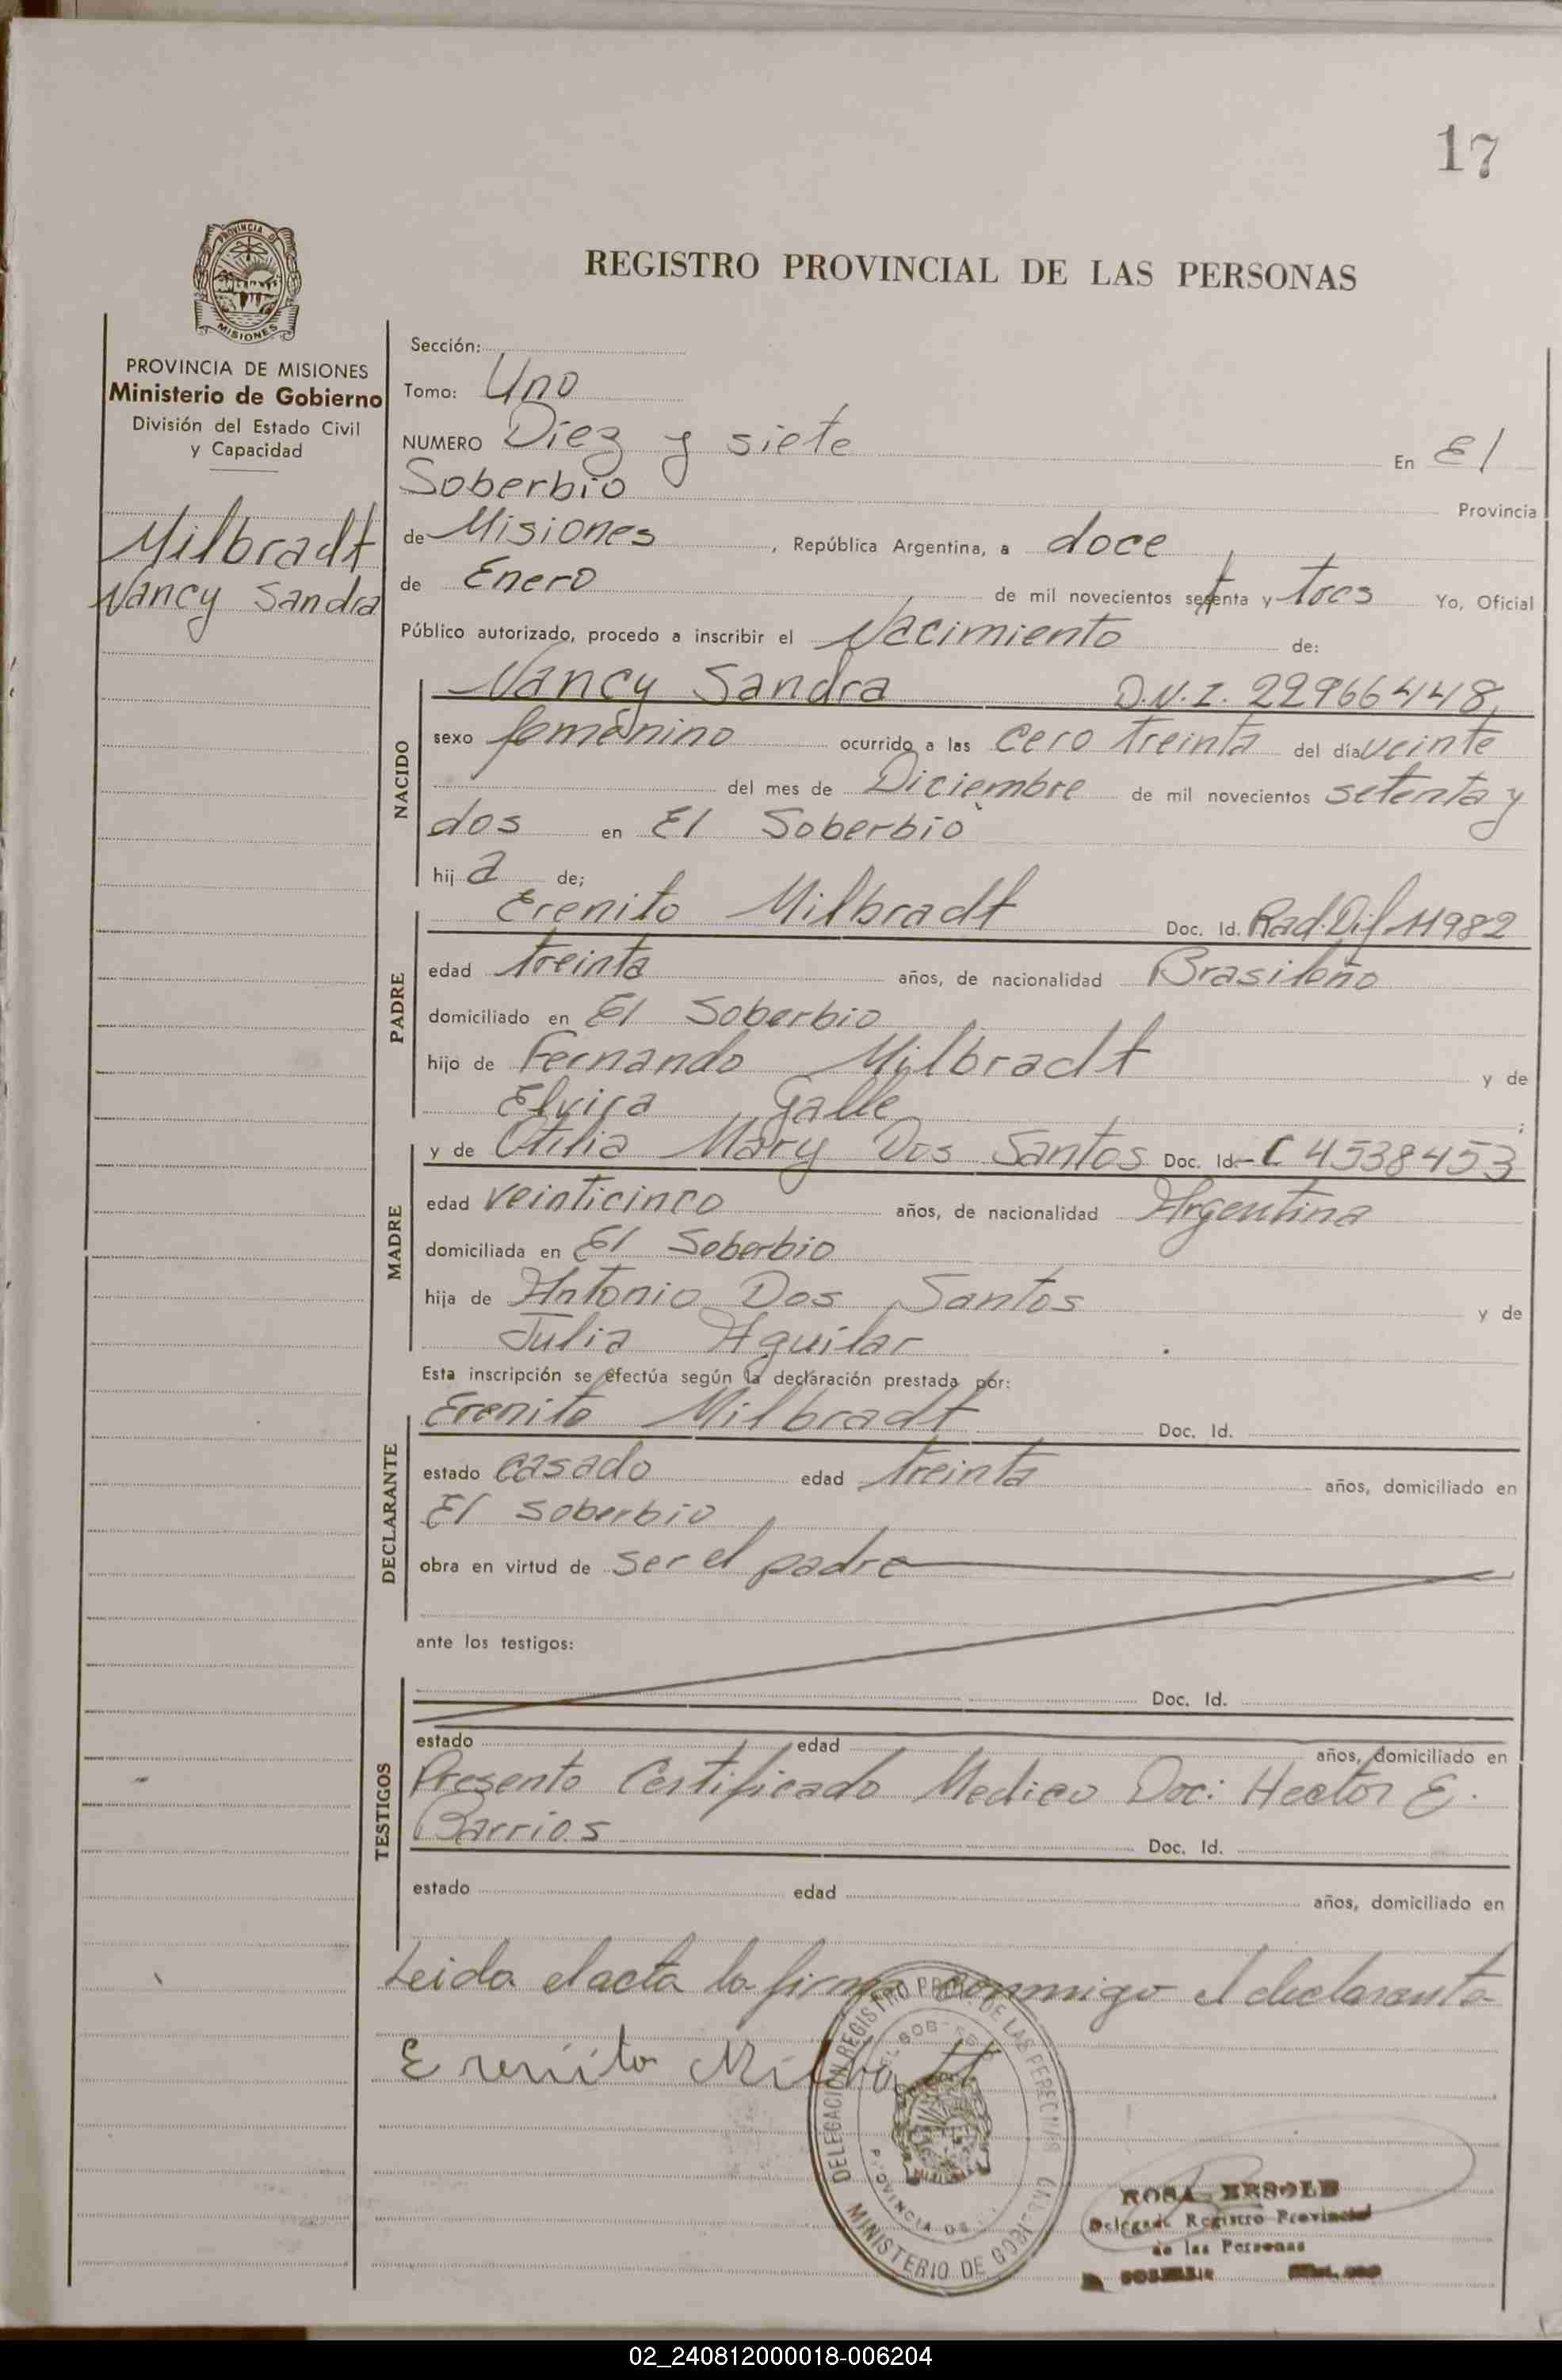 17
PROVINCIA DE MISIONES
REGISTRO PROVINCIAL DE LAS PERSONAS
PROVINCIA DE MISIONES
Ministerio de Gobierno
División del Estado Civil
y Capacidad
Milbradt
Nancy Sandra
Sección:
Tomo: Uno
NUMERO Diez y siete En El
Soberbio Provincia
de Misiones, República Argentina, a doce
de Enero de mil novecientos setenta y tres Yo, Oficial
Público autorizado, procedo a inscribir el Nacimiento de:
NACIDO
Nancy Sandra D.N.I. 22966448,
sexo femenino ocurrido a las cero treinta del día veinte
del mes de Diciembre de mil novecientos setenta y
dos en El Soberbio
hij a de;
PADRE
Erenito Milbradt Doc. Id. Rad. Dif 11982
edad treinta años, de nacionalidad Brasileño
domiciliado en El Soberbio
hijo de Fernando Milbradt y de
Elvira Galle ;
MADRE
y de Otilia Mary Dos Santos Doc. Id.- C 4538453
edad veinticinco años, de nacionalidad Argentina
domiciliada en El Soberbio
hija de Antonio Dos Santos y de
Julia Aguilar .
Esta inscripción se efectúa según la declaración prestada por:
DECLARANTE
Erenito Milbradt Doc. Id.
estado casado edad treinta años, domiciliado en
El Soberbio
obra en virtud de ser el padre
ante los testigos:
TESTIGOS
Doc. Id.
estado edad años, domiciliado en
Presento Certificado Medico Doc: Hector E.
Barrios Doc. Id.
estado edad años, domiciliado en
Leida el acta la firma conmigo el declarante
Erenito Milbradt
DELEGACION REGISTRO PROV. DE LAS PERSONAS
EL SOBERBIO
PROVINCIA DE
MINISTERIO DE GOBIERNO
ROSA
Delegada Registro Provincial
de las Personas
02_240812000018-006204